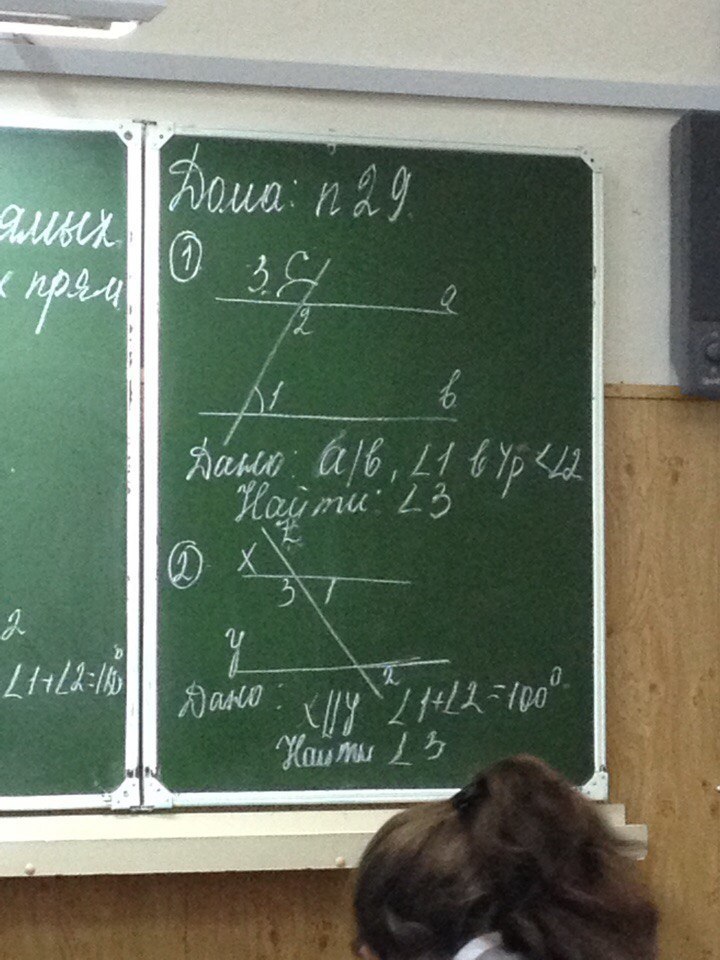 ямых
х прям
2
∠1+∠2=180°
Дома: п 29.
①
3
a
2
1
b
Дано: a∥b, ∠1 в 4р <∠2
Найти: ∠3
②
z
x
3 1
y
2
Дано: x∥y ∠1+∠2=100°
Найти ∠3